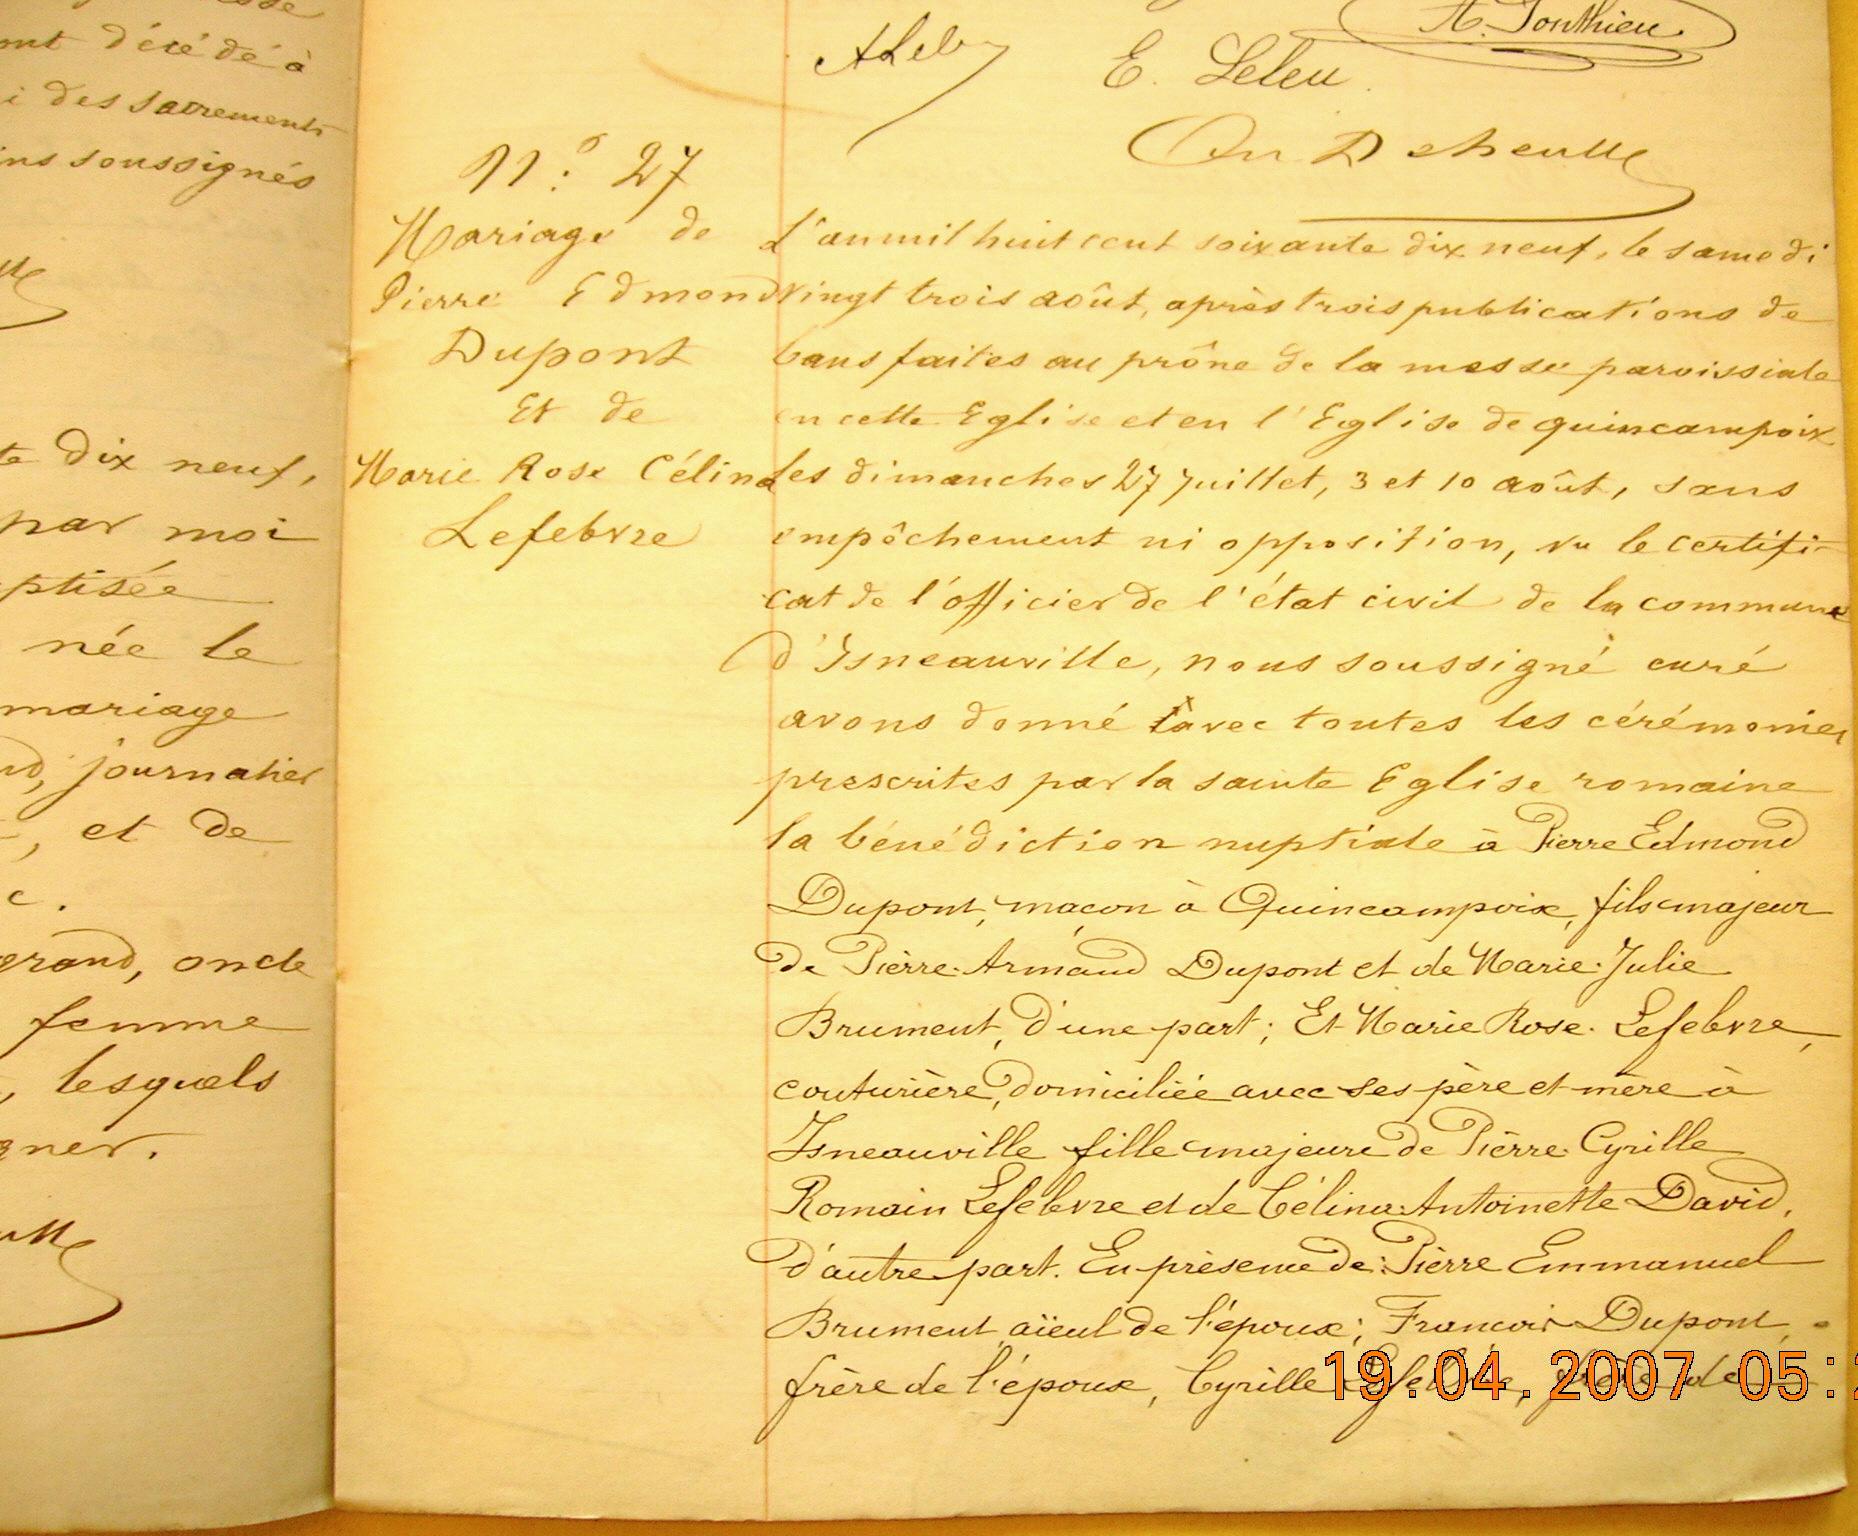 ont décédé à
i des sacrements
ins soussignés
te dix neuf,
par moi
ptisée
née le
mariage
nd, journalier
, et de
c.
grand, oncle
femme
, lesquels
gner.
E. Leleu
N.º 27
Mariage de
Pierre Edmond
Dupont
Et de
Marie Rose Célina
Lefebvre
L'an mil huit cent soixante dix neuf, le samedi
vingt trois août, après trois publications de
bans faites au prône de la messe paroissiale
en cette Eglise et en l'Eglise de quincampoix
les dimanches 27 Juillet, 3 et 10 août, sans
empêchement ni opposition, vu le certifi-
cat de l'officier de l'état civil de la commune
d'Isneauville, nous soussigné curé
avons donné avec toutes les cérémonies
prescrites par la sainte Eglise romaine
la bénédiction nuptiale à Pierre Edmond
Dupont, maçon à Quincampoix, fils majeur
de Pierre Armand Dupont et de Marie Julie
Brument, d'une part; Et Marie Rose Lefebvre,
couturière, domiciliée avec ses père et mère à
Isneauville fille majeure de Pierre Cyrille
Romain Lefebvre et de Célina Antoinette David,
d'autre part. En présence de: Pierre Emmanuel
Brument, aïeul de l'époux; François Dupont,
frère de l'époux, Cyrille Lefebvre, frère de
19.04.2007 05: